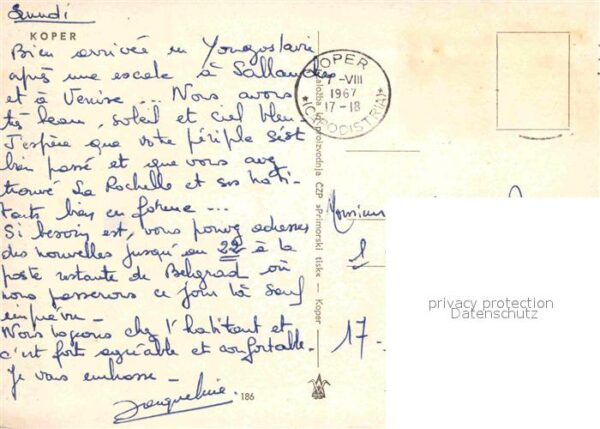 Lundi
KOPER
Bien arrivée en Yougoslavie
après une escale à Sallanches
et à Venise... Nous avons
très beau, soleil et ciel bleu -
J'espère que votre périple s'est
bien passé et que vous avez
trouvé La Rochelle et ses habi-
tants bien en forme...
Si besoin est, vous pouvez adresser
des nouvelles jusqu'au 22 à la
poste restante de Belgrad où
nous passerons ce jour là sauf
imprévu -
Nous logeons chez l'habitant et
c'est fort agréable et confortable -
Je vous embrasse -
Jacqueline.
186
Založba in proizvodnja ČZP »Primorski tisk« — Koper
KOPER
7-VIII
1967
17-18
(CAPODISTRIA)
Monsieur
1
17-
privacy protection
Datenschutz